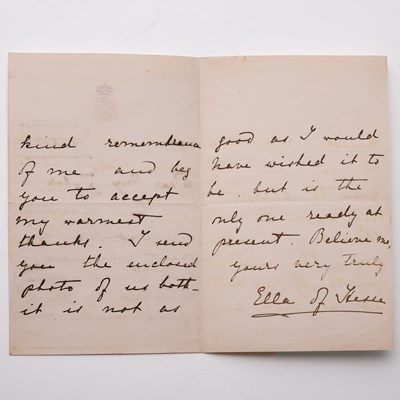 kind remembrance
of me. and beg
you to accept
my warmest
thanks. I send
you the enclosed
photo of us both-
it is not as
good as I would
have wished it to
be. but is the
only one ready at
present. Believe me,
yours very truly
Ella of Hesse